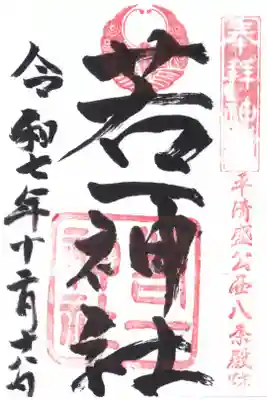 奉拝
平清盛公西八条殿跡
若一神社
令和七年十二月